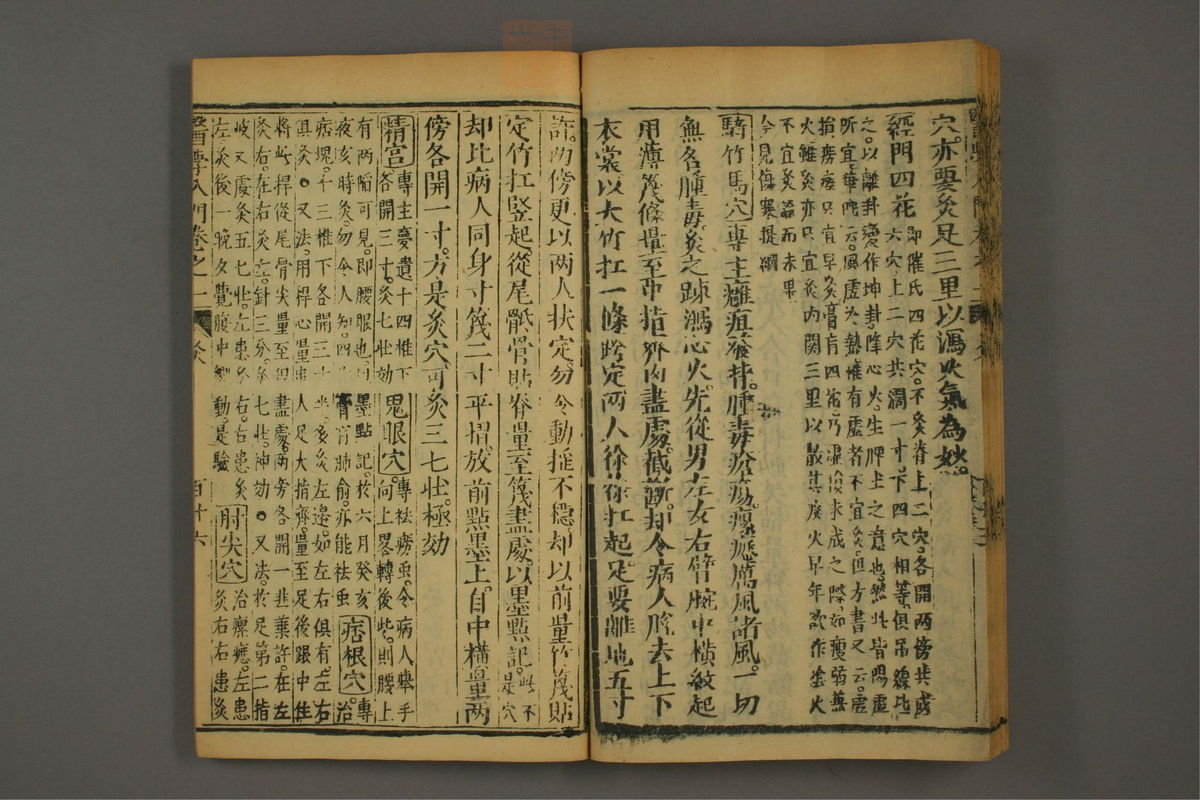 穴亦要灸足三里以瀉火氣為妙
經門四花即崔氏四花穴不灸脊上二穴各開兩傍共成
六穴上二穴共濶一寸下四穴相等俱吊線比
之以離卦變作坤卦降心火生脾土之意也然此皆陽虛
所宜華佗云風虛冷熱惟有虛者不宜灸但方書又云虛
損癆瘵只宜早灸膏肓四花乃虛損未成之際如瘦弱兼
火雖灸亦只宜灸內關三里以散其痰火早年欲作陰火
不宜灸論而未畢
今見傷寒提綱
騎竹馬穴專主癰疽發背腫毒瘡瘍瘰癧厲風諸風一切
無名腫毒灸之疎瀉心火先從男左女右臂腕中橫紋起
用薄篾條量至中指齊肉盡處截斷却令病人脫去上下
衣裳以大竹扛一條跨定兩人徐徐扛起足要離地五寸
許兩傍更以兩人扶定勿令動搖不穩却以前量竹篾貼
定竹扛竪起從尾骶骨貼脊量至篾盡處以墨點記此不是穴
却比病人同身寸篾二寸平摺放前點墨上自中橫量兩
傍各開一寸方是灸穴可灸三七壯極効
精宮專主夢遺十四椎下各開三寸灸七壯効 鬼眼穴專祛癆蟲令病人舉手向上畧轉後些則腰上
有兩陷可見即腰眼也以墨點記於六月癸亥
夜亥時灸勿令人知四花膏肓肺俞亦能祛蟲 痞根穴專治
痞塊十三椎下各開三寸半多灸左邊如左右俱有左右
俱灸又法用稈心量患人足大指齊量至足後跟中住
將此稈從尾骨尖量至稈盡處兩旁各開一韭葉許在左
灸右在右灸左針三分灸七壯神効又法於足第二指
歧叉處灸五七壯左患灸右右患灸
左灸後一晚夕覺腹中響動是驗 肘尖穴治瘰癧左患灸右右患灸
醫學入門卷之一
灸
百十六